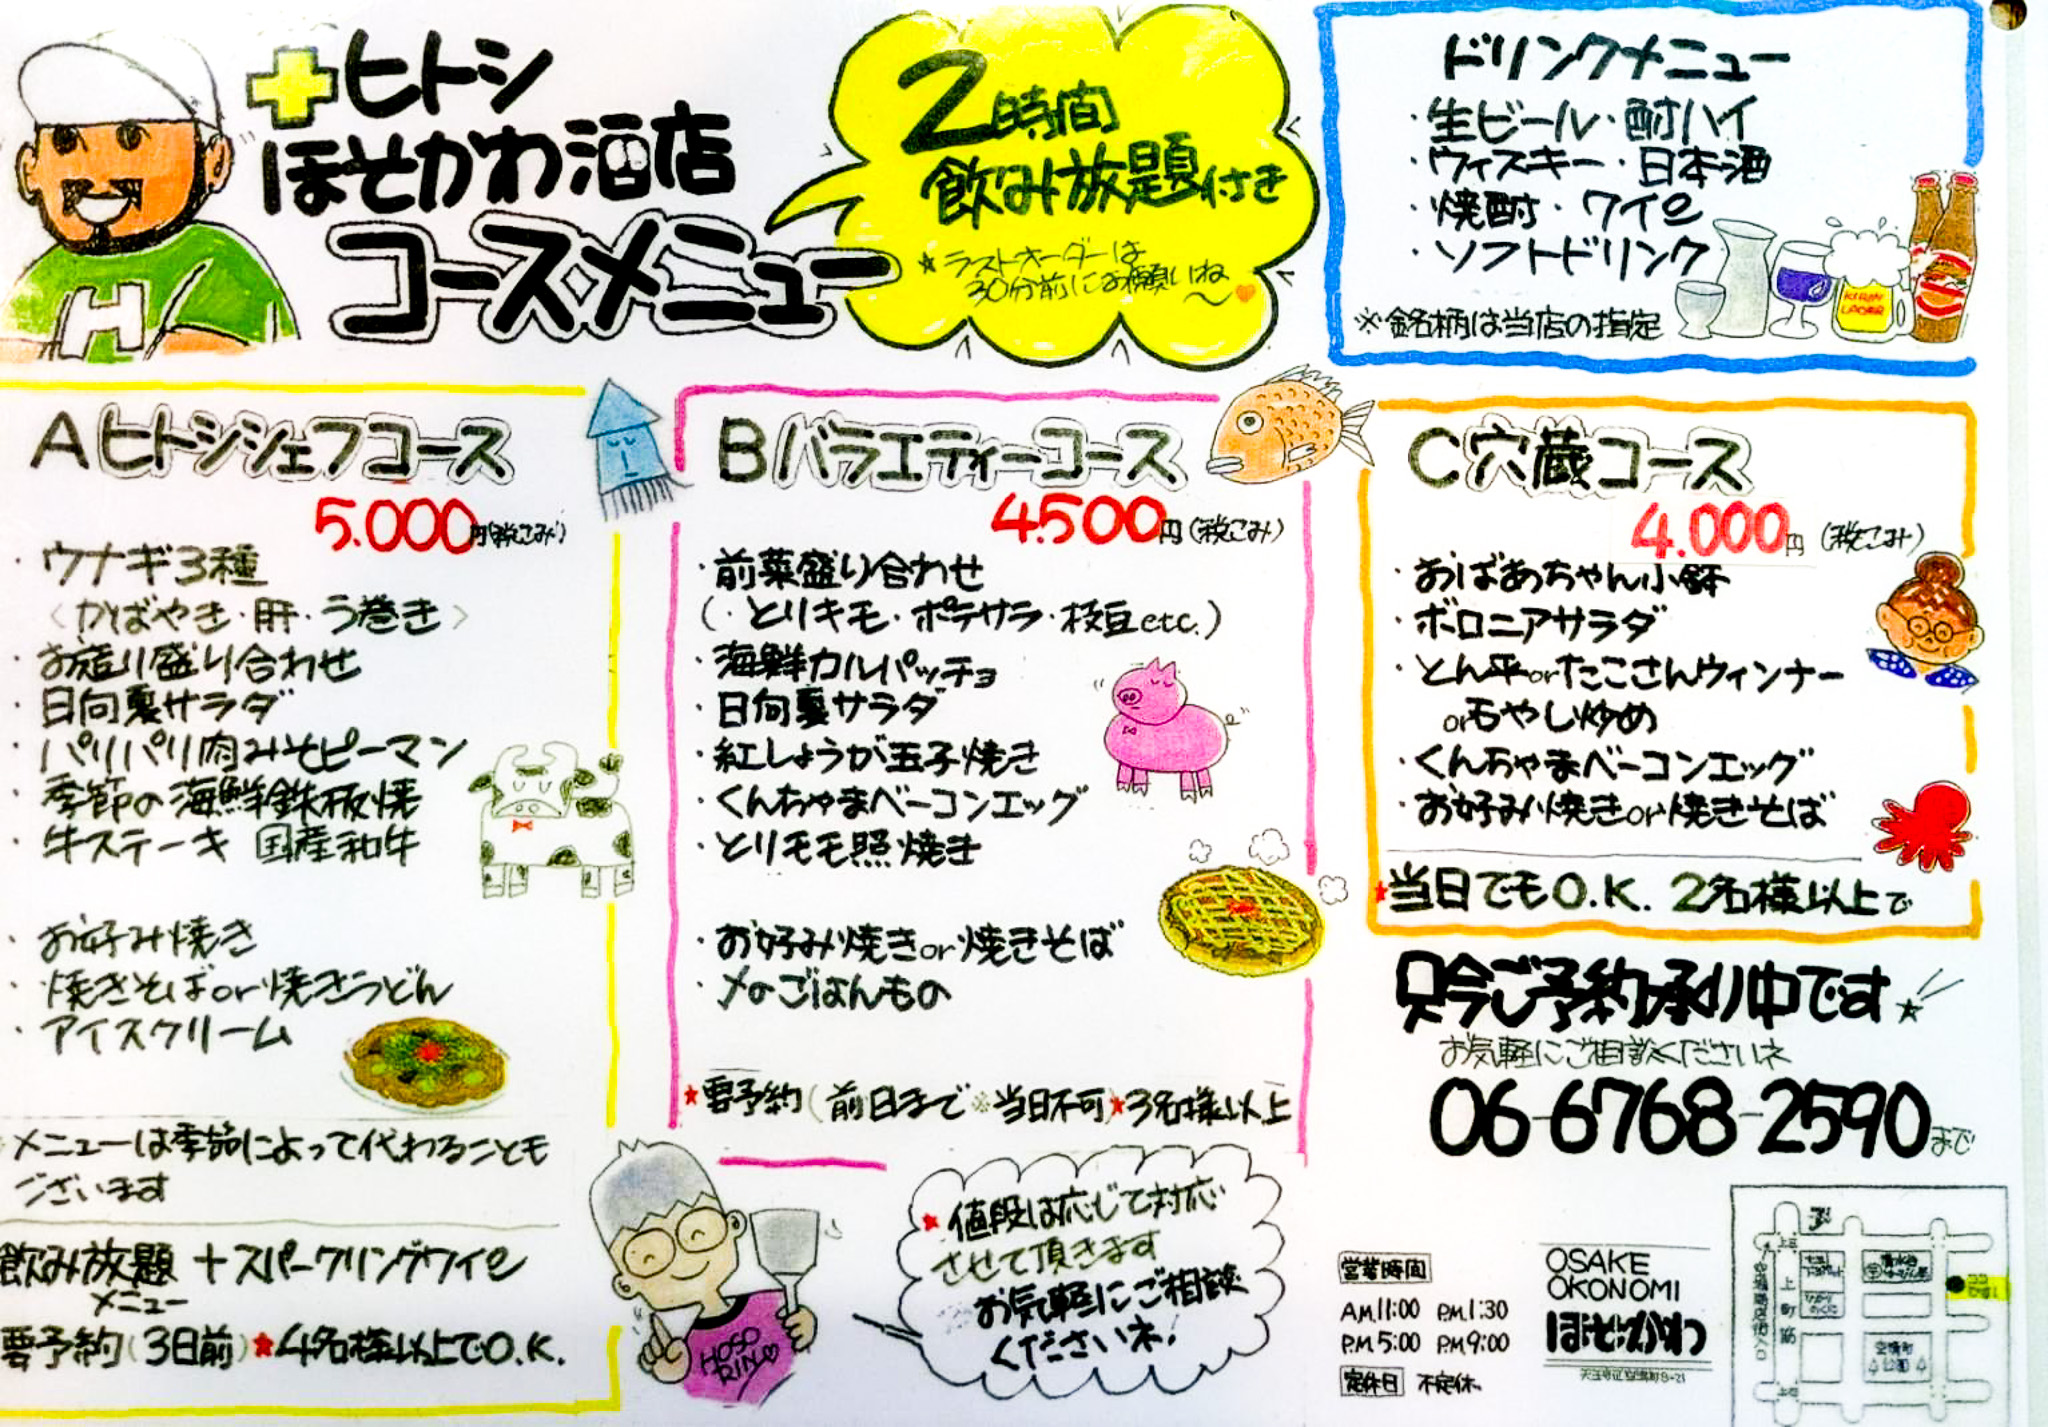 ヒトシ
ほそかわ酒店
コースメニュー
2時間
飲み放題付き
★ラストオーダーは
30分前にお願いね〜♥
ドリンクメニュー
・生ビール・酎ハイ
・ウィスキー・日本酒
・焼酎・ワイン
・ソフトドリンク
※銘柄は当店の指定
KIRIN
LAGER
H
Aヒトシシェフコース
5.000円(税こみ)
・ウナギ3種
〈かばやき・肝・う巻き〉
・お造り盛り合わせ
・日向夏サラダ
・パリパリ肉みそピーマン
・季節の海鮮鉄板焼
・牛ステーキ 国産和牛
・お好み焼き
・焼きそばor焼きうどん
・アイスクリーム
メニューは季節によって代わることも
ございます
飲み放題+スパークリングワイン
メニュー
要予約(3日前)★4名様以上でO.K.
Bバラエティーコース
4500円(税こみ)
・前菜盛り合わせ
(・とりキモ・ポテサラ・枝豆etc.)
・海鮮カルパッチョ
・日向夏サラダ
・紅しょうが玉子焼き
・くんちゃまベーコンエッグ
・とりモモ照焼き
・お好み焼きor焼きそば
・〆のごはんもの
★要予約(前日まで※当日不可★3名様以上
HOSO
RIN♡
★値段は応じて対応
させて頂きます
お気軽にご相談
くださいネ!
C穴蔵コース
4.000円(税こみ)
・おばあちゃん小鉢
・ボロニアサラダ
・とん平orたこさんウィンナー
orもやし炒め
・くんちゃまベーコンエッグ
・お好み焼きor焼きそば
★当日でもO.K. 2名様以上で
只今ご予約承り中です★
お気軽にご相談くださいネ
06-6768-2590まで
営業時間
AM11:00 P.M.1:30
P.M.5:00 P.M.9:00
定休日 不定休
OSAKE
OKONOMI
ほそかわ
上町筋
公園